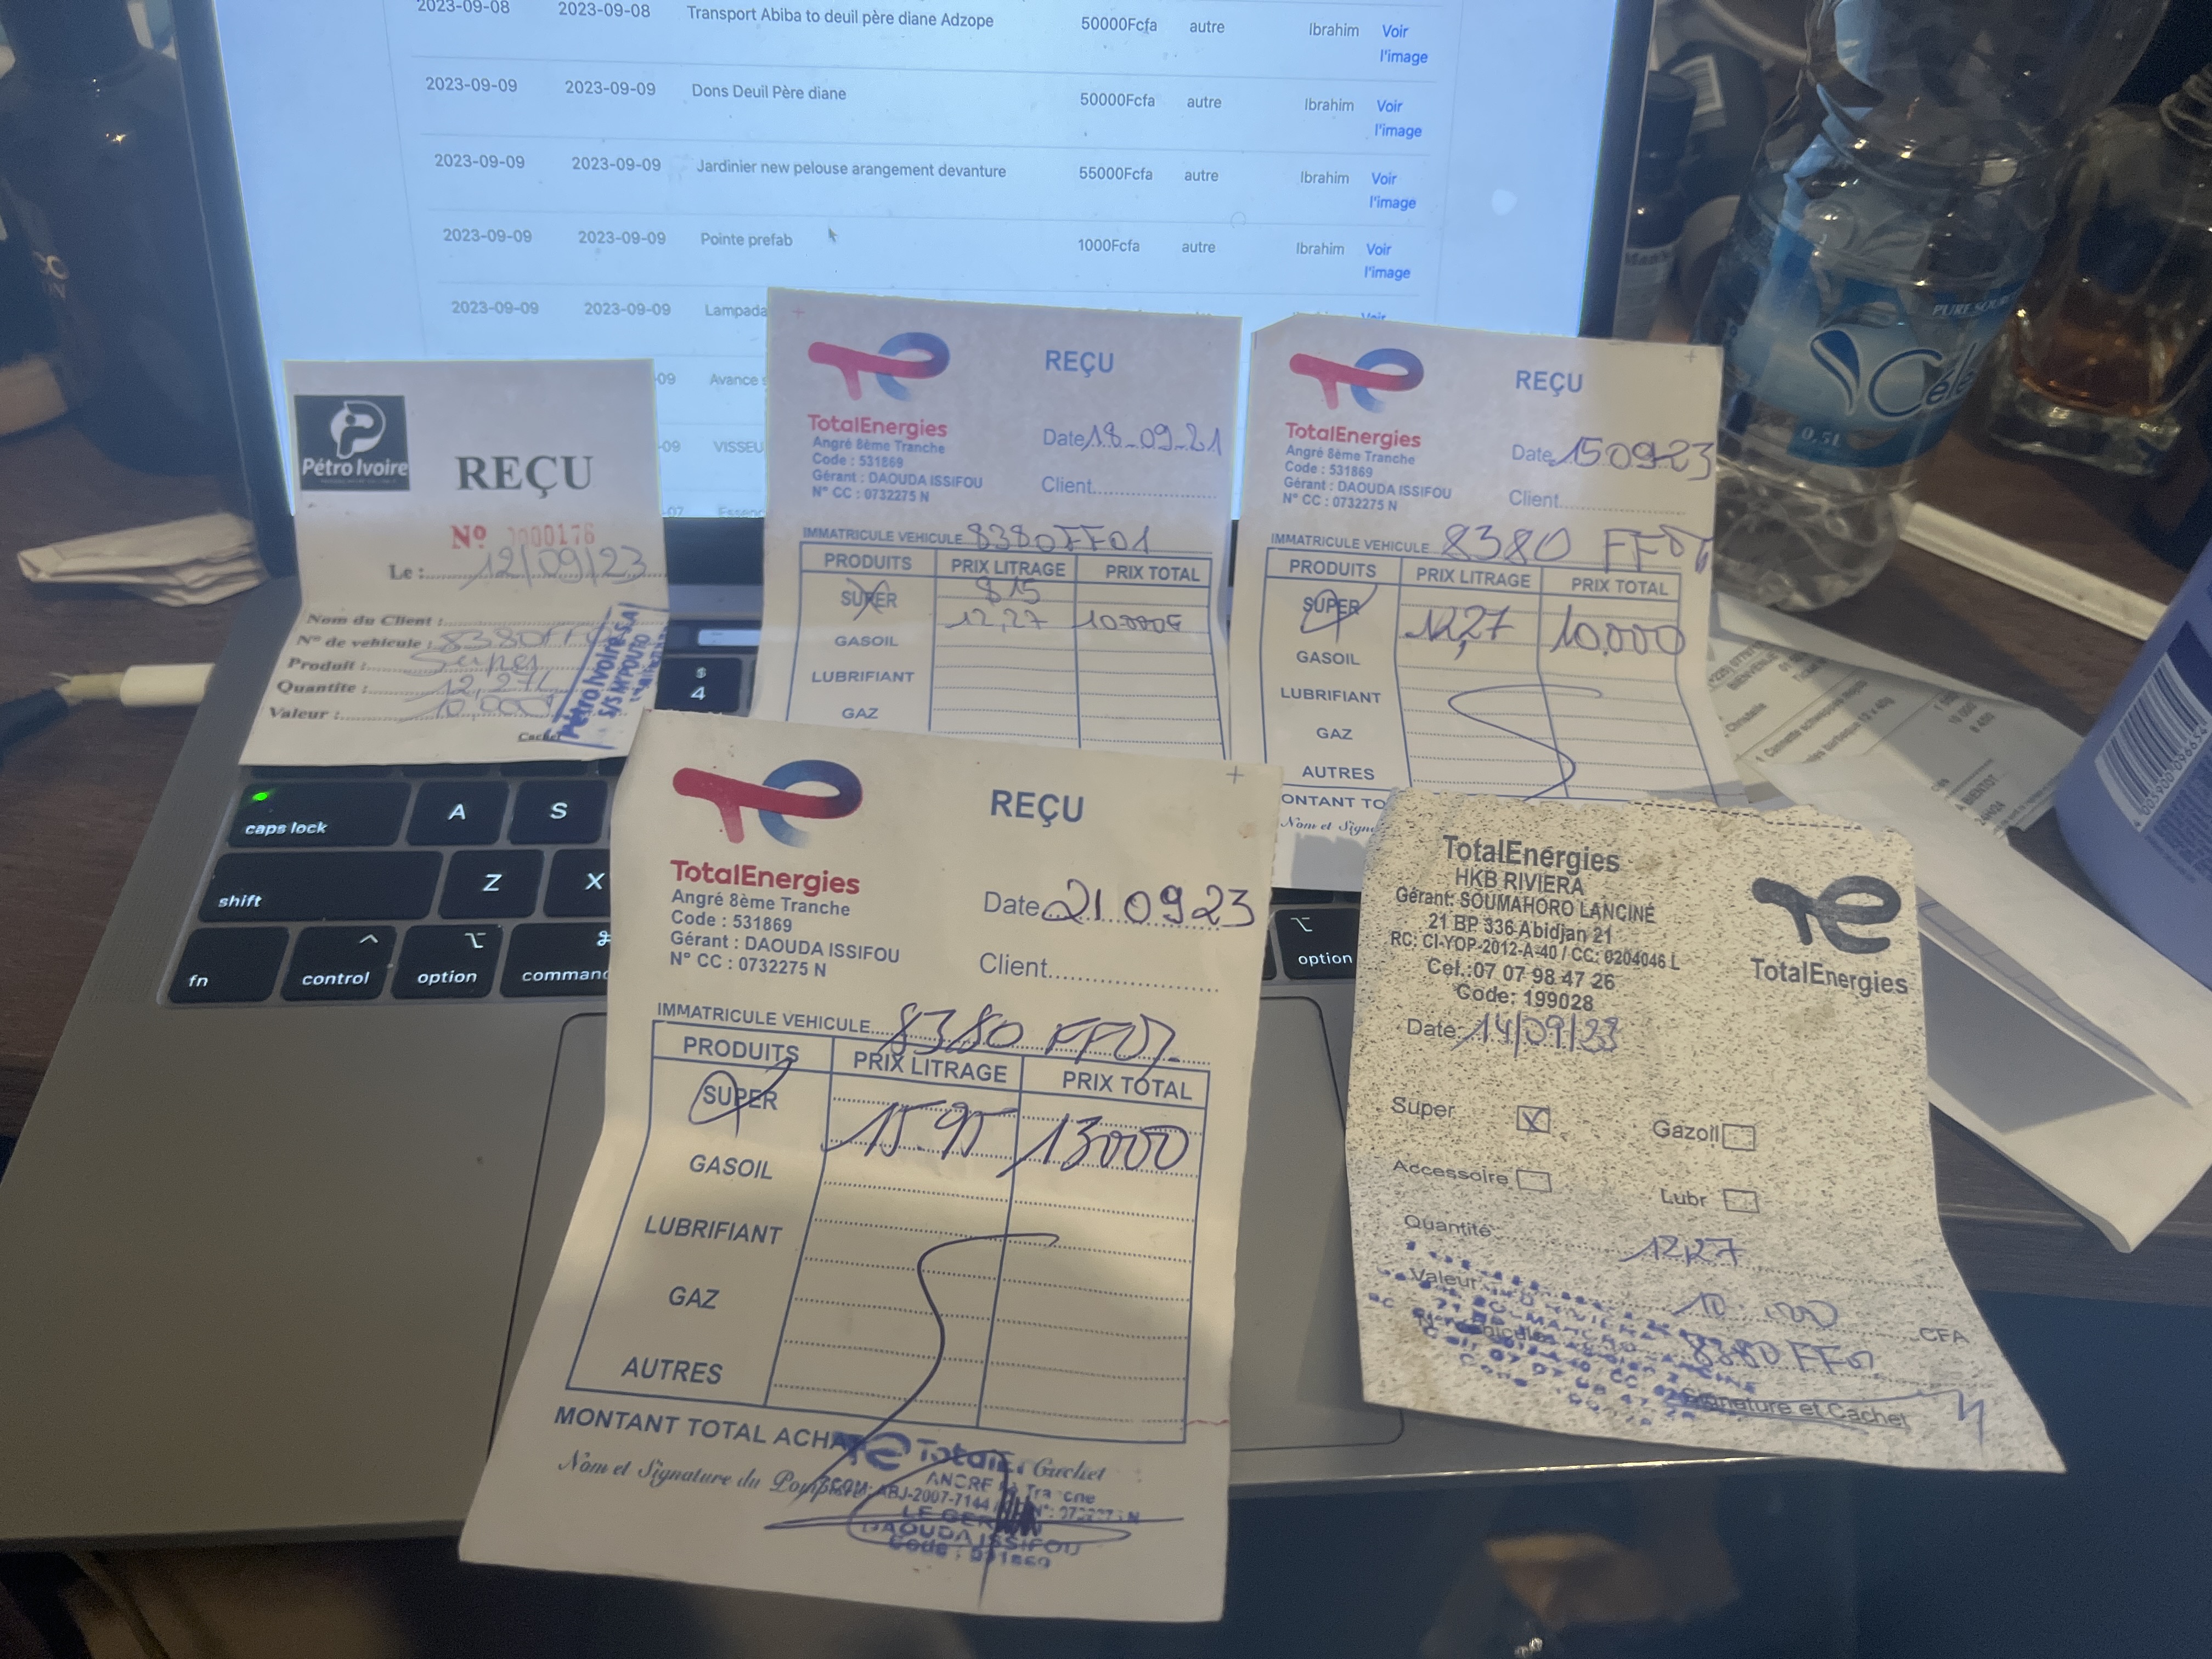 2023-09-08 2023-09-08 Transport Abiba to deuil père diane Adzope 50000Fcfa autre Ibrahim Voir
l'image
2023-09-09 2023-09-09 Dons Deuil Père diane 50000Fcfa autre Ibrahim Voir
l'image
2023-09-09 2023-09-09 Jardinier new pelouse arangement devanture 55000Fcfa autre Ibrahim Voir
l'image
2023-09-09 2023-09-09 Pointe prefab 1000Fcfa autre Ibrahim Voir
l'image
2023-09-09 2023-09-09 Lampada
-09 Avance
-09 VISSEU
-07 Essenc
Pétro Ivoire
REÇU
Nº 0000176
Le : 12/09/23
Nom du Client :
Nº de vehicule : 8380FF
Produit : Super
Quantite : 12,27L
Valeur : 10,000
Cachet
Pétro Ivoire-S.A
REÇU
TotalEnergies
Angré 8ème Tranche
Code : 531869
Gérant : DAOUDA ISSIFOU
N° CC : 0732275 N
Date 18-09-21
Client
IMMATRICULE VEHICULE 8380FF01
PRODUITS PRIX LITRAGE PRIX TOTAL
SUPER 815
12,27 10.000
GASOIL
LUBRIFIANT
GAZ
REÇU
TotalEnergies
Angré 8ème Tranche
Code : 531869
Gérant : DAOUDA ISSIFOU
N° CC : 0732275 N
Date 150923
Client
IMMATRICULE VEHICULE 8380 FF01
PRODUITS PRIX LITRAGE PRIX TOTAL
SUPER 12,27 10,000
GASOIL
LUBRIFIANT
GAZ
AUTRES
ONTANT TO
Nom et Sign
REÇU
TotalEnergies
Angré 8ème Tranche
Code : 531869
Gérant : DAOUDA ISSIFOU
N° CC : 0732275 N
Date 21.09.23
Client
IMMATRICULE VEHICULE 8380 FF01
PRODUITS PRIX LITRAGE PRIX TOTAL
SUPER 15.95 13000
GASOIL
LUBRIFIANT
GAZ
AUTRES
MONTANT TOTAL ACHA
Nom et Signature du Pompiste
Guchet
ABJ-2007-7144
DAOUDA ISSIFOU
Code : 531869
TotalEnergies
HKB RIVIERA
Gérant: SOUMAHORO LANCINÉ
21 BP 336 Abidjan 21
RC: CI-YOP-2012-A-40 / CC: 0204046 L
Cel.:07 07 98 47 26
Code: 199028
TotalEnergies
Date: 14/09/23
Super X Gazoil
Accessoire Lubr
Quantité 12,27
Valeur 10.000 CFA
8380 FF01
Signature et Cachet
PURE SOUR
Céle
0,5L
$
4
caps lock A S
shift Z X
fn control option command
option